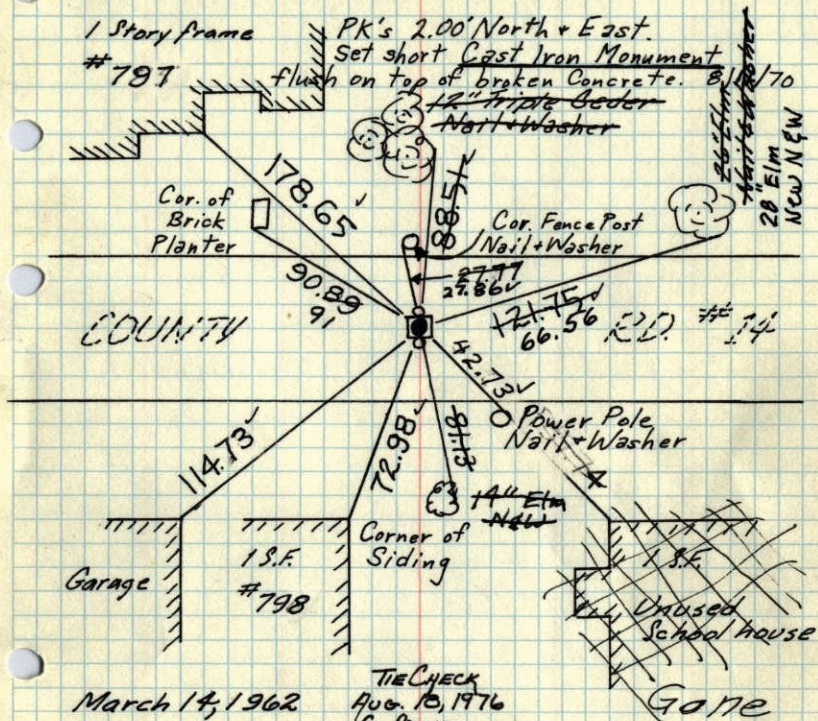 1 Story frame
#797
PK's 2.00' North & East.
Set short Cast Iron Monument
flush on top of broken Concrete.
12" Triple Ceder
Nail & Washer
26" Elm
28" Elm
New N&W
178.65
88.51
Cor. of
Brick
Planter
Cor. Fence Post
Nail & Washer
90.89
91
27.77
27.86
121.75
66.56
COUNTY
RD. #14
42.73
Power Pole
Nail & Washer
114.73
72.98
81.13
14" Elm
N&W
Corner of
Siding
Garage
1 S.F.
#798
1 S.F.
Unused
School house
Gone
TIE CHECK
March 14, 1962
Aug. 18, 1976